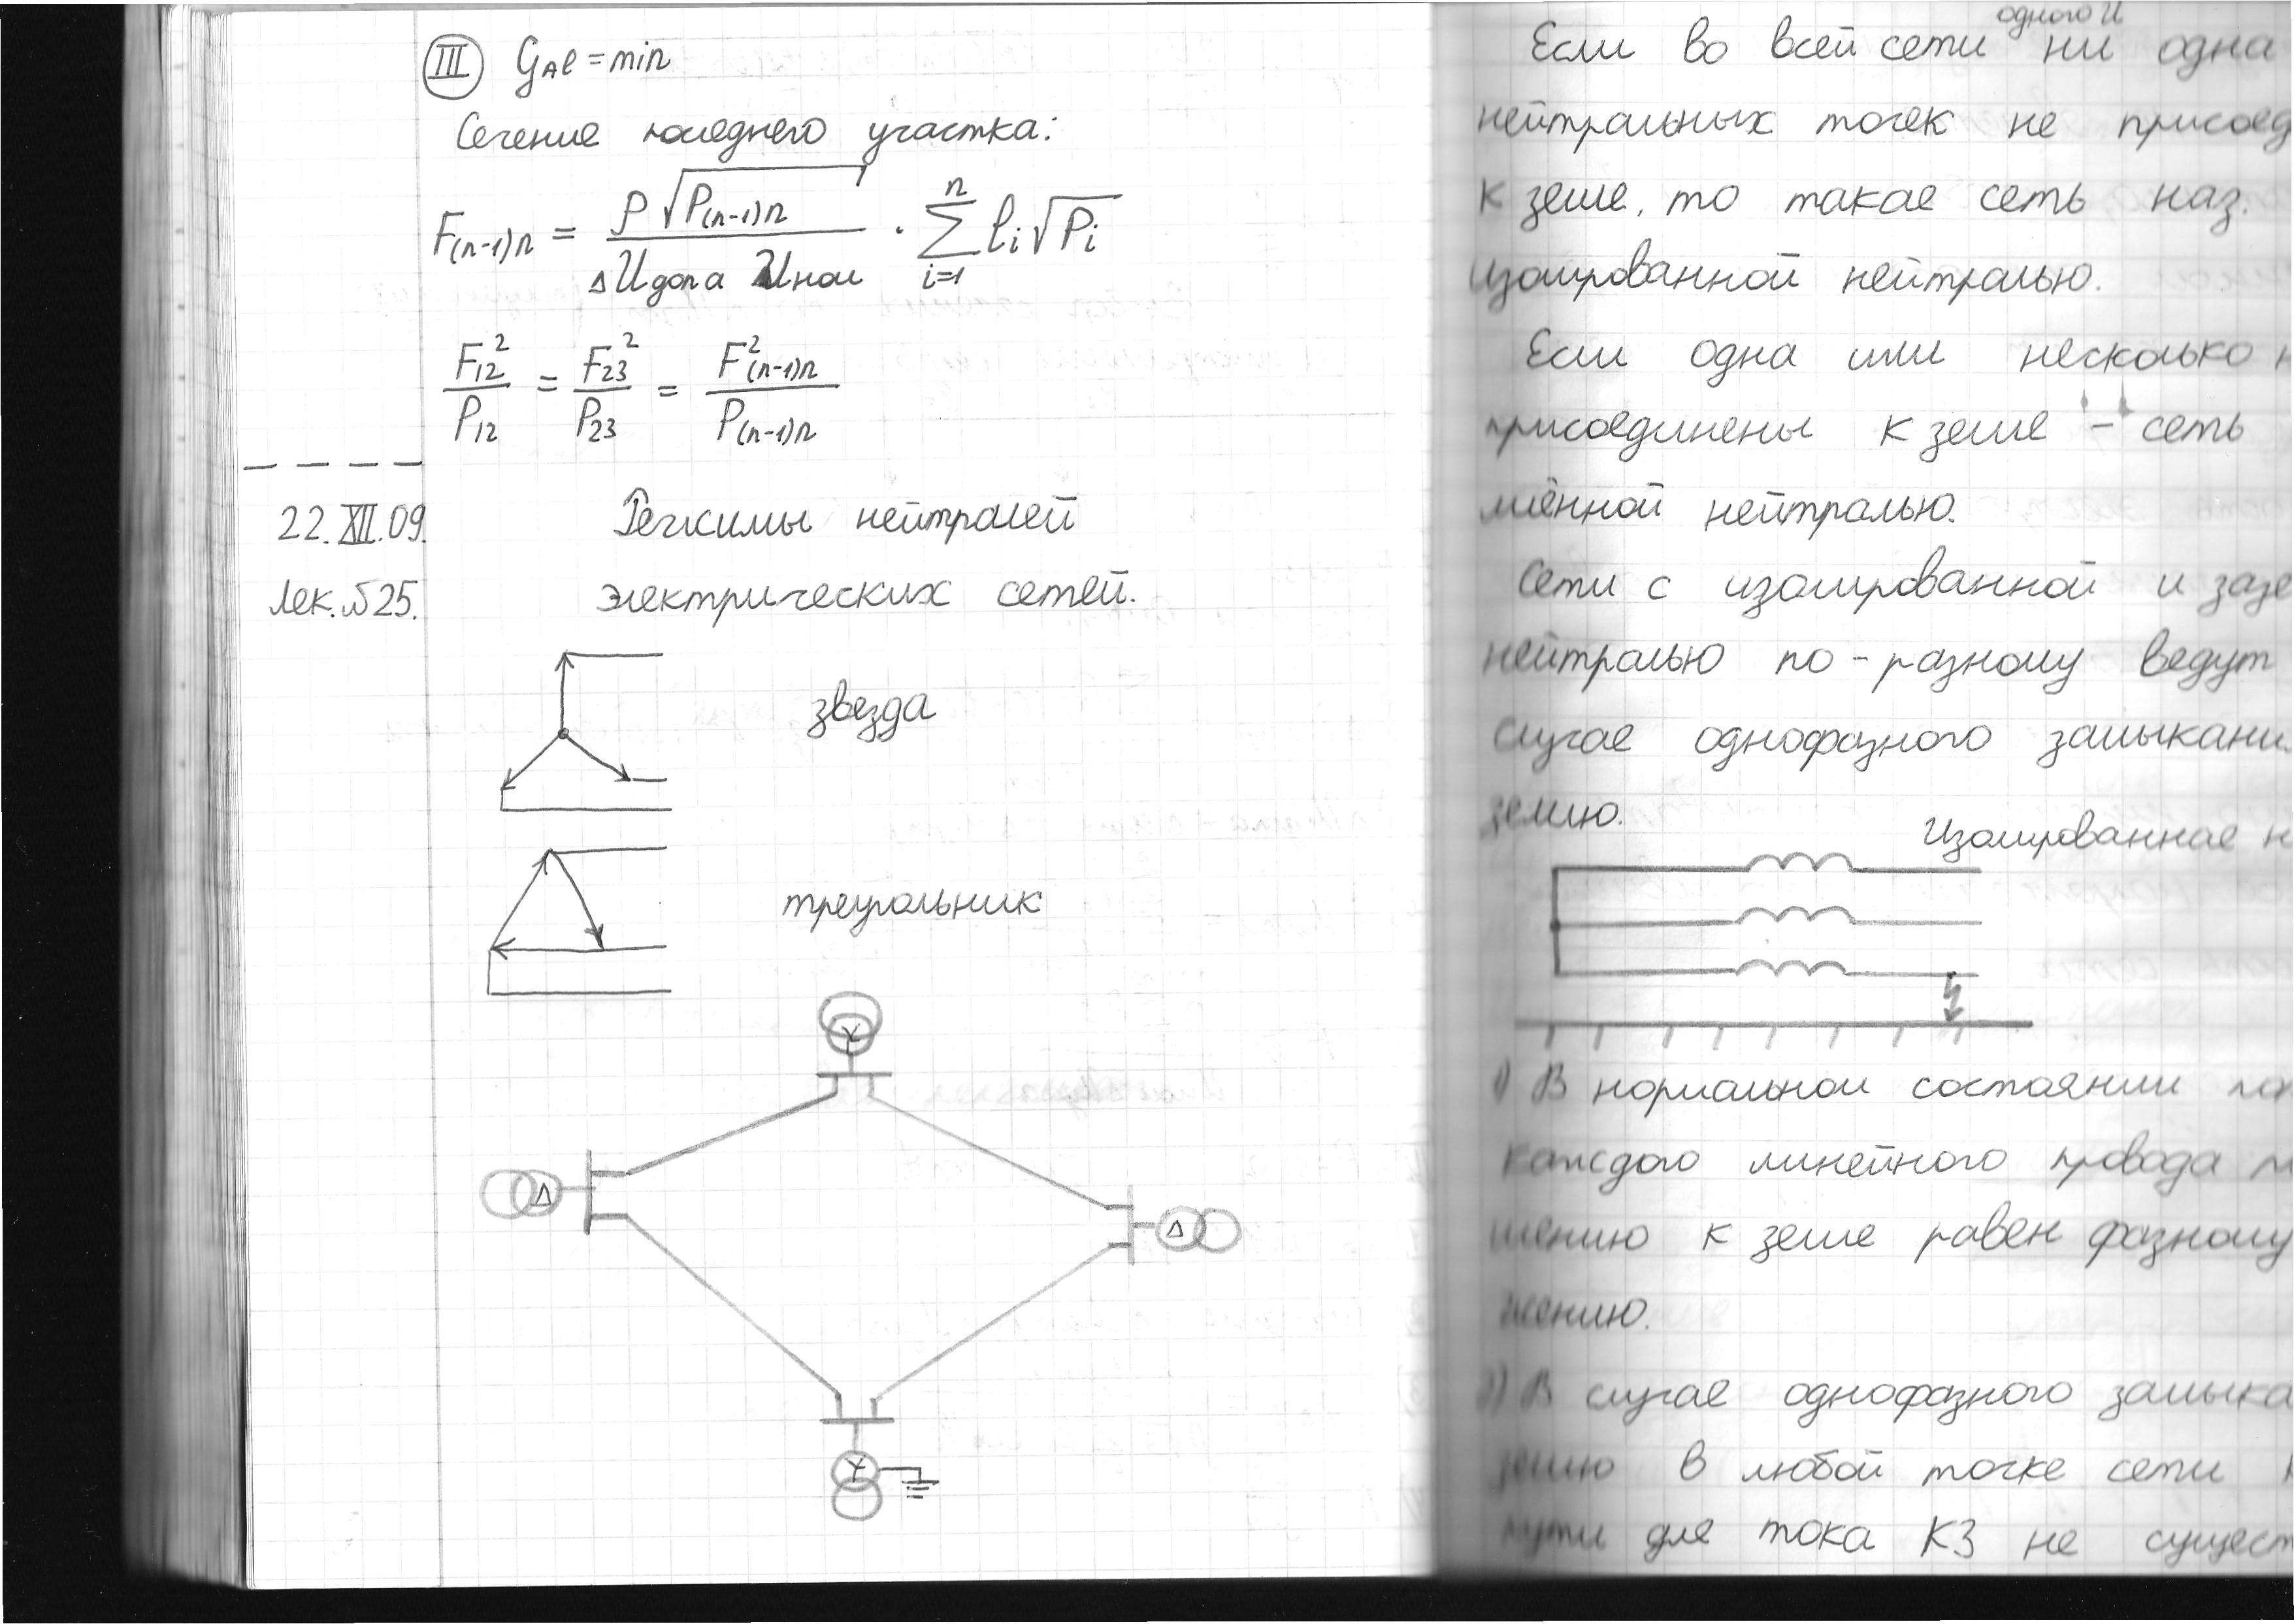 III G Al = min
Сечение последнего участка:
F(n-1)n = ρ√P(n-1)n / ΔUдоп а Uном · n ∑ i=1 li√Pi
F12² / P12 = F23² / P23 = F²(n-1)n / P(n-1)n
22.XII.09. Режимы нейтралей
Лек. №25. электрических сетей.
звезда
треугольник
Y
Δ
Δ
Y
одного U
Если во всей сети ни одна
нейтральных точек не присоед
к земле, то такая сеть наз.
изолированной нейтралью.
Если одна или несколько н
присоединены к земле - сеть
млённой нейтралью.
Сети с изолированной и зазе
нейтралью по-разному ведут
случае однофазного замыкани
землю.
Изолированная н
1) В нормальном состоянии
каждого линейного провода
шению к земле равен фазному
жению.
2) В случае однофазного замыка
землю в любой точке сети
пути для тока КЗ не сущест